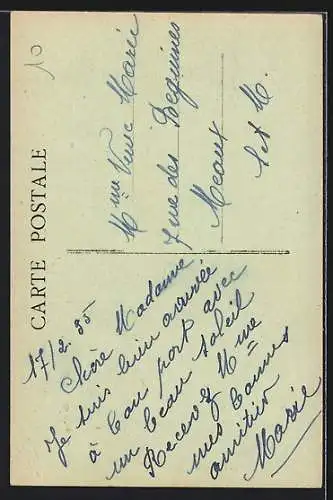 10
CARTE POSTALE
Mme Veuve Marié
7 rue des Béguines
Meaux
S et M.
17/2.35
Chère Madame
Je suis bien arrivée
à bon port avec
un beau soleil
Recevez Mme
mes bonnes
amitiés
Marie